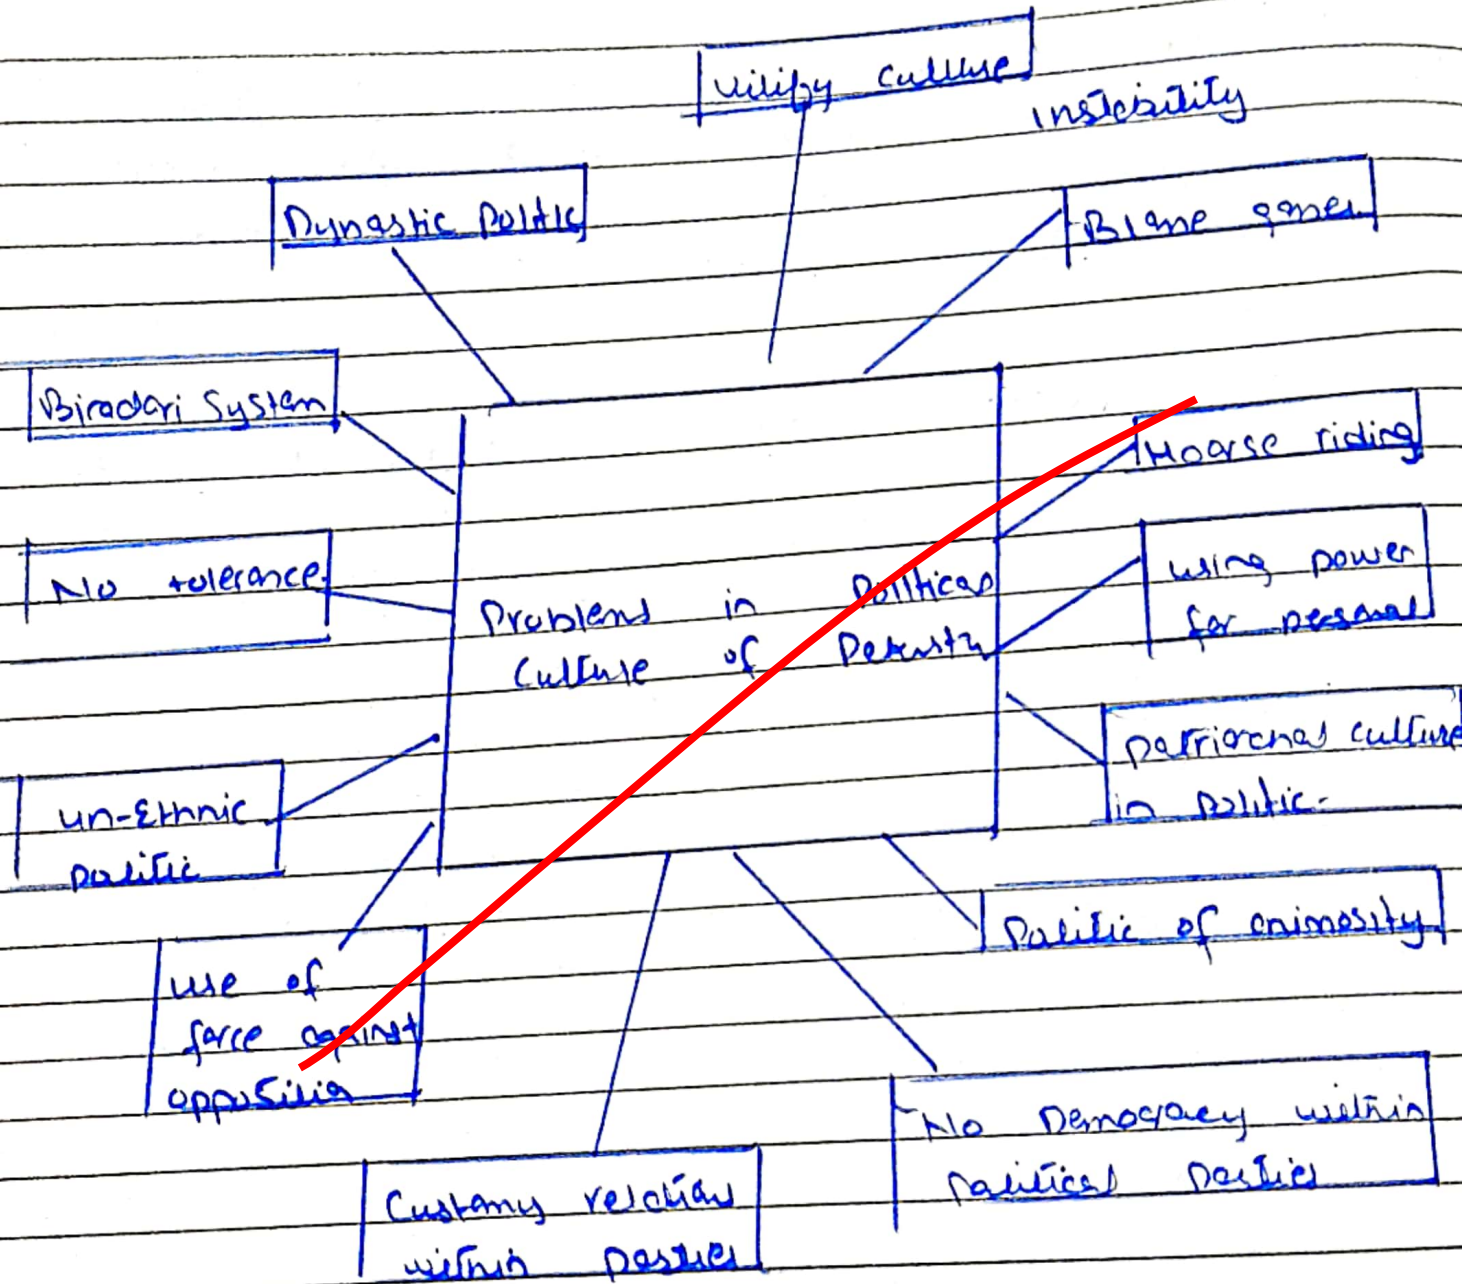 Vilify Culture
instability
Dynastic Politic
Blame games
Biradari System
Hoarse riding
No tolerance
using power
for personal
Problems in Political
Culture of
Patriarchal culture
in politic.
un-Ethnic
politic
Politic of animosity
use of
force against
opposition
No Democracy within
political parties
relations
within parties